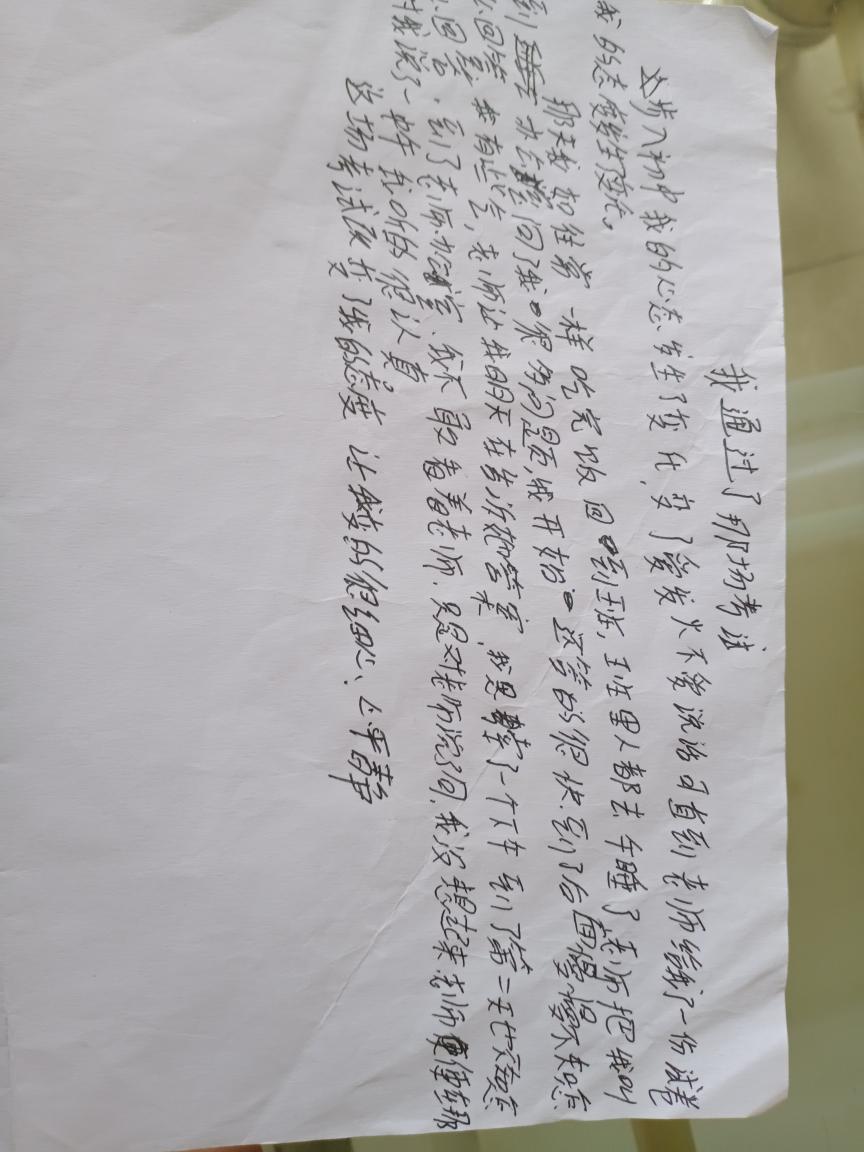 我通过了那场考试
步入初中我的心态发生了变化,变了爱发火不爱说话可直到老师给我了一份试卷
我的态度发生了变化。
那天我如往常一样吃完饭回到班,班里人都去午睡了老师把我叫
到 才去 问了我很多问题,我开始还答的很快.到了后面慢慢不知怎
么回答 我有些忘,老师让我明天在告诉她答案,我思 了一个下午 到了第二天也没想怎
么回答,到了老师办公室,我不敢看着老师.只是对老师说了句,我没想起来.老师 便 帮
我说了一 我听的很认真
这场考试改变了我的态度 让我变的很细心、心平静